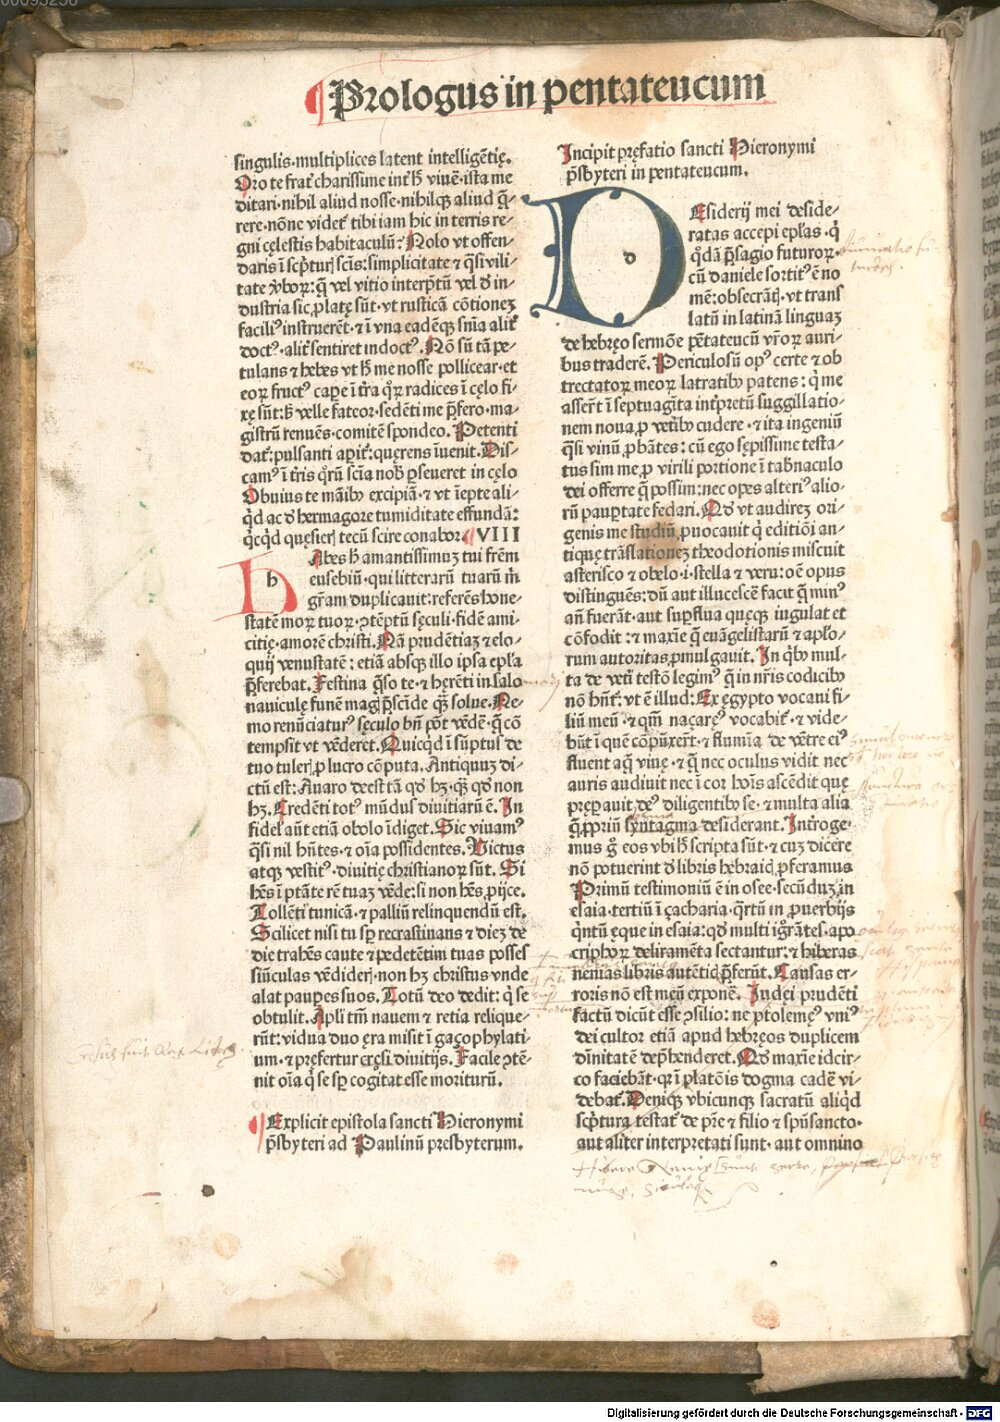 ¶Prologus in pentateucum
singulis·multiplices latent intelligētię.
Oro te frat᷑ charissime int᷑ h̄ viuē·ista me
ditari·nihil aliud nosse·nihilqꝫ aliud q̄-
rere·nōne videt᷑ tibi iam hic in terris re-
gni cęlestis habitaculū? Nolo vt offen-
daris ī scp̄turꝭ scīs: simplicitate ⁊ q̄si vili-
tate v̾boꝝ: q̄ vel vitio interp̄tū vel d̄ in-
dustria sic ꝓlatę sūt·vt rusticā cōtionez
faciliꝰ instruerēt·⁊ ī vna eadēqꝫ sn̄ia alit᷑
doctꝰ·alit᷑ sentiret indoctꝰ. Nō sū tā pe-
tulans ⁊ hebes vt h̄ me nosse pollicear·et
eoꝝ fructꝰ cape ī t᷑ra qͦꝝ radices ī cęlo fi-
xę sūt: sꝫ velle fateor·sedēti me p̄fero·ma-
gistrū renuēs·comitē spondeo. Petenti
dat᷑: pulsanti apit᷑: quęrens īuenit. Dis-
camꝰ ī t᷑ris qͦrū scīa nob̄ ꝑseueret in cęlo
Obuiis te māibꝰ excipiā·⁊ vt īepte ali-
q̄d ac d̄ hermagore tumiditate effundā:
q̄cq̄d quęsierꝭ tecū scire conabor. ¶VIII
h Abes h̄ amantissimuꝫ tui frēm
eusebiū·qui litterarū tuarū mͥ
gr̄am duplicauit: referēs hone-
statē moꝝ tuoꝝ·ꝯtēptū sęculi·fidē ami-
citię·amorē christi. Nā prudētiaꝫ ⁊ elo-
quij venustatē: etiā absqꝫ illo ipsa epl̄a
p̄ferebat. Festina q̄so te·⁊ hęrēti in salo
nauiculę funē magꝭ p̄scīde qꝫ solue. Ne-
mo renūciaturꝰ sęculo bn̄ pōt vēdē·q̄ cō
tempsit vt vēderet. Quicqd ī sūptus de
tuo tulerꝭ ꝓ lucro cōputa. Antiquuꝫ di-
ctū est: Auaro deest tā qd̄ hꝫ·qꝫ qd̄ non
hꝫ. Credēti totꝰ mūdus diuitiarū ē. In
fidel᷑ aūt etiā obolo īdiget. Sic viuamꝰ
q̄si nil hn̄tes·⁊ oīa possidentes. Victus
atqꝫ vestitꝰ·diuitię christianoꝝ sūt. Si
hēs ī ptāte rē tuaꝫ vēde: si non hēs ꝓijce.
Tollēti tunicā·⁊ palliū relinquendū est.
Scilicet nisi tu sp̄ recrastinans ⁊ dieꝫ de
die trahēs caute ⁊ pedetētim tuas posses
siūculas vēdiderꝭ·non hꝫ christus vnde
alat paupes suos. Totū deo dedit: q̄ se
obtulit. Apl̄i tm̄ nauem ⁊ retia relique-
rūt: vidua duo ęra misit ī gaçophylati-
um·⁊ pręfertur cręsi diuitijs. Facile ꝯtē-
nit oīa q̄ se sp̄ cogitat esse moriturū.
¶Explicit epistola sancti Hieronymi
p̄sbyteri ad Paulinū presbyterum.
Incipit pręfatio sancti Hieronymi
p̄sbyteri in pentateucum.
D Esiderij mei deside-
ratas accepi epl̄as·q̄
q̄dā p̄sagio futuroꝝ·
cū daniele sortitꝰ ē no
mē: obsecrātꝭ·vt trans
latū in latinā linguaꝫ
de hebręo sermōe pētateucū vr̄oꝝ auri-
bus traderē. Periculosū opꝰ certe ⁊ ob
trectatoꝝ meoꝝ latratibꝰ patens: q̄ me
asserūt ī septuagīta int᷑pretū suggillatio-
nem noua ꝓ vet᷑ibꝰ cudere·⁊ ita ingeniū
q̄si vinū ꝓbātes: cū ego sępissime testa-
tus sim me ꝓ virili portione ī tab᷑naculo
dei offerre q̄ possim: nec opes alteriꝰ alio-
rū paupertate fedari. Qd̄ vt auderē ori-
genis me studiū ꝓuocauit q̄ editiōi an-
tiquę trāslationeꝫ theodotionis miscuit
asterisco ⁊ obelo·i·stella ⁊ veru: oē opus
distinguēs: dū aut illucescē facit q̄ minꝰ
an̄ fuerāt·aut supflua quęqꝫ iugulat et
cōfodit: ⁊ maxīe q̄ euāgelistarū ⁊ aplo-
rum autoritas ꝓmulgauit. In qͥbꝰ mul-
ta de vet᷑i testō legimꝰ q̄ in nr̄is codicibꝰ
nō hn̄t᷑: vt ē illud: Ex egypto vocaui fi-
liū meū·⁊ qm̄ naçaręꝰ vocabit᷑·⁊ vide-
būt ī quē cōpūxer̄t·⁊ flumīa de vētre eiꝰ
fluent aq̄ viuę·⁊ q̄ nec oculus vidit nec
auris audiuit nec ī cor hoīs ascēdit quę
pręparauit deꝰ diligentibꝰ se·⁊ multa alia
q̄ ꝓpriū syntagma desiderant. Int᷑roge-
mus g̊ eos vbi h̄ scripta sūt·⁊ cuꝫ dicere
nō potuerint d̄ libris hebraicꝭ ꝓferamus
Primū testimoniū ē in osee·secūduꝫ in
esaia·tertiū ī çacharia·q̄rtū in ꝓuerbijs
q̄ntū ęque in esaia: qd̄ multi igrātes·apo
criphoꝝ deliramēta sectantur: ⁊ hiberas
nenias libris autēticꝭ p̄ferūt. Causas er-
roris nō est meū exponē. Iudęi prudēti
factū dicūt esse ꝯsilio: ne ptolemęꝰ vniꝰ
dei cultor etiā apud hebręos duplicem
diuītatē dep̄henderet. Qd̄ maxīe idcir-
co faciebāt·qꝛ ī platōis dogma cadē vi-
debat᷑. Deniqꝫ vbicunqꝫ sacratū aliqd
scp̄tura testat᷑ de pr̄e ⁊ filio ⁊ spū sancto·
aut aliter interpretati sunt·aut omnino
Digitalisierung gefördert durch die Deutsche Forschungsgemeinschaft - DFG